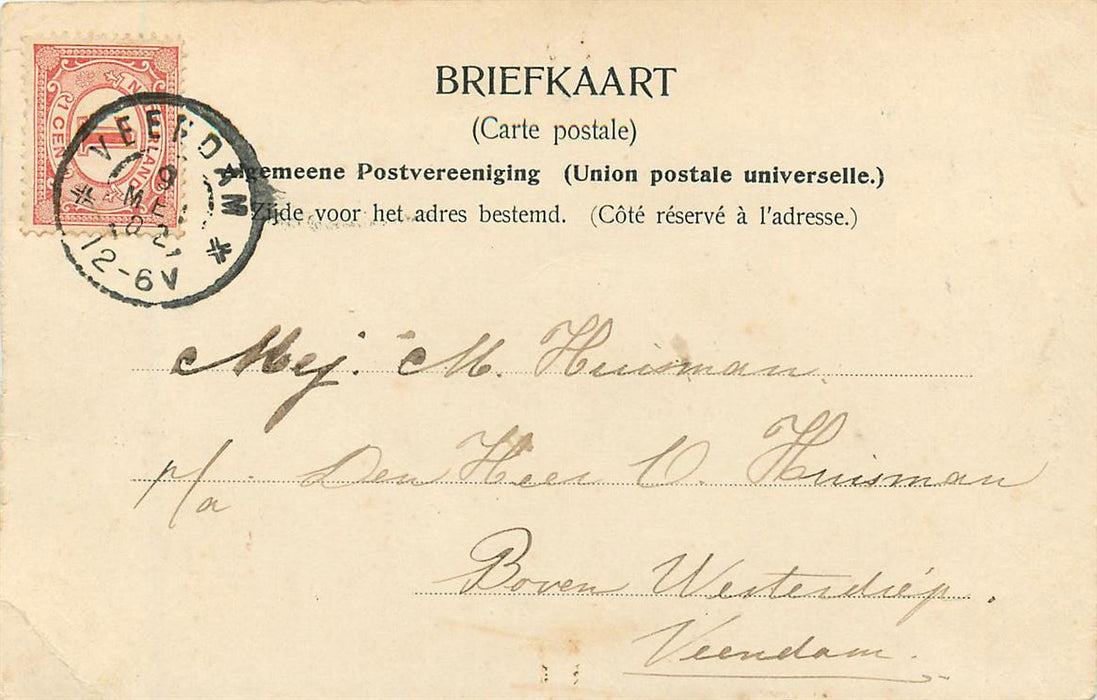 BRIEFKAART
(Carte postale)
Algemeene Postvereeniging (Union postale universelle.)
Zijde voor het adres bestemd. (Côté réservé à l'adresse.)
NEDERLAND
1 CENT
1
VEENDAM
9
MEI
12-6V
Mej. M. Huisman
p/a Den Heer O. Huisman
Boven Westerdiép.
Veendam.